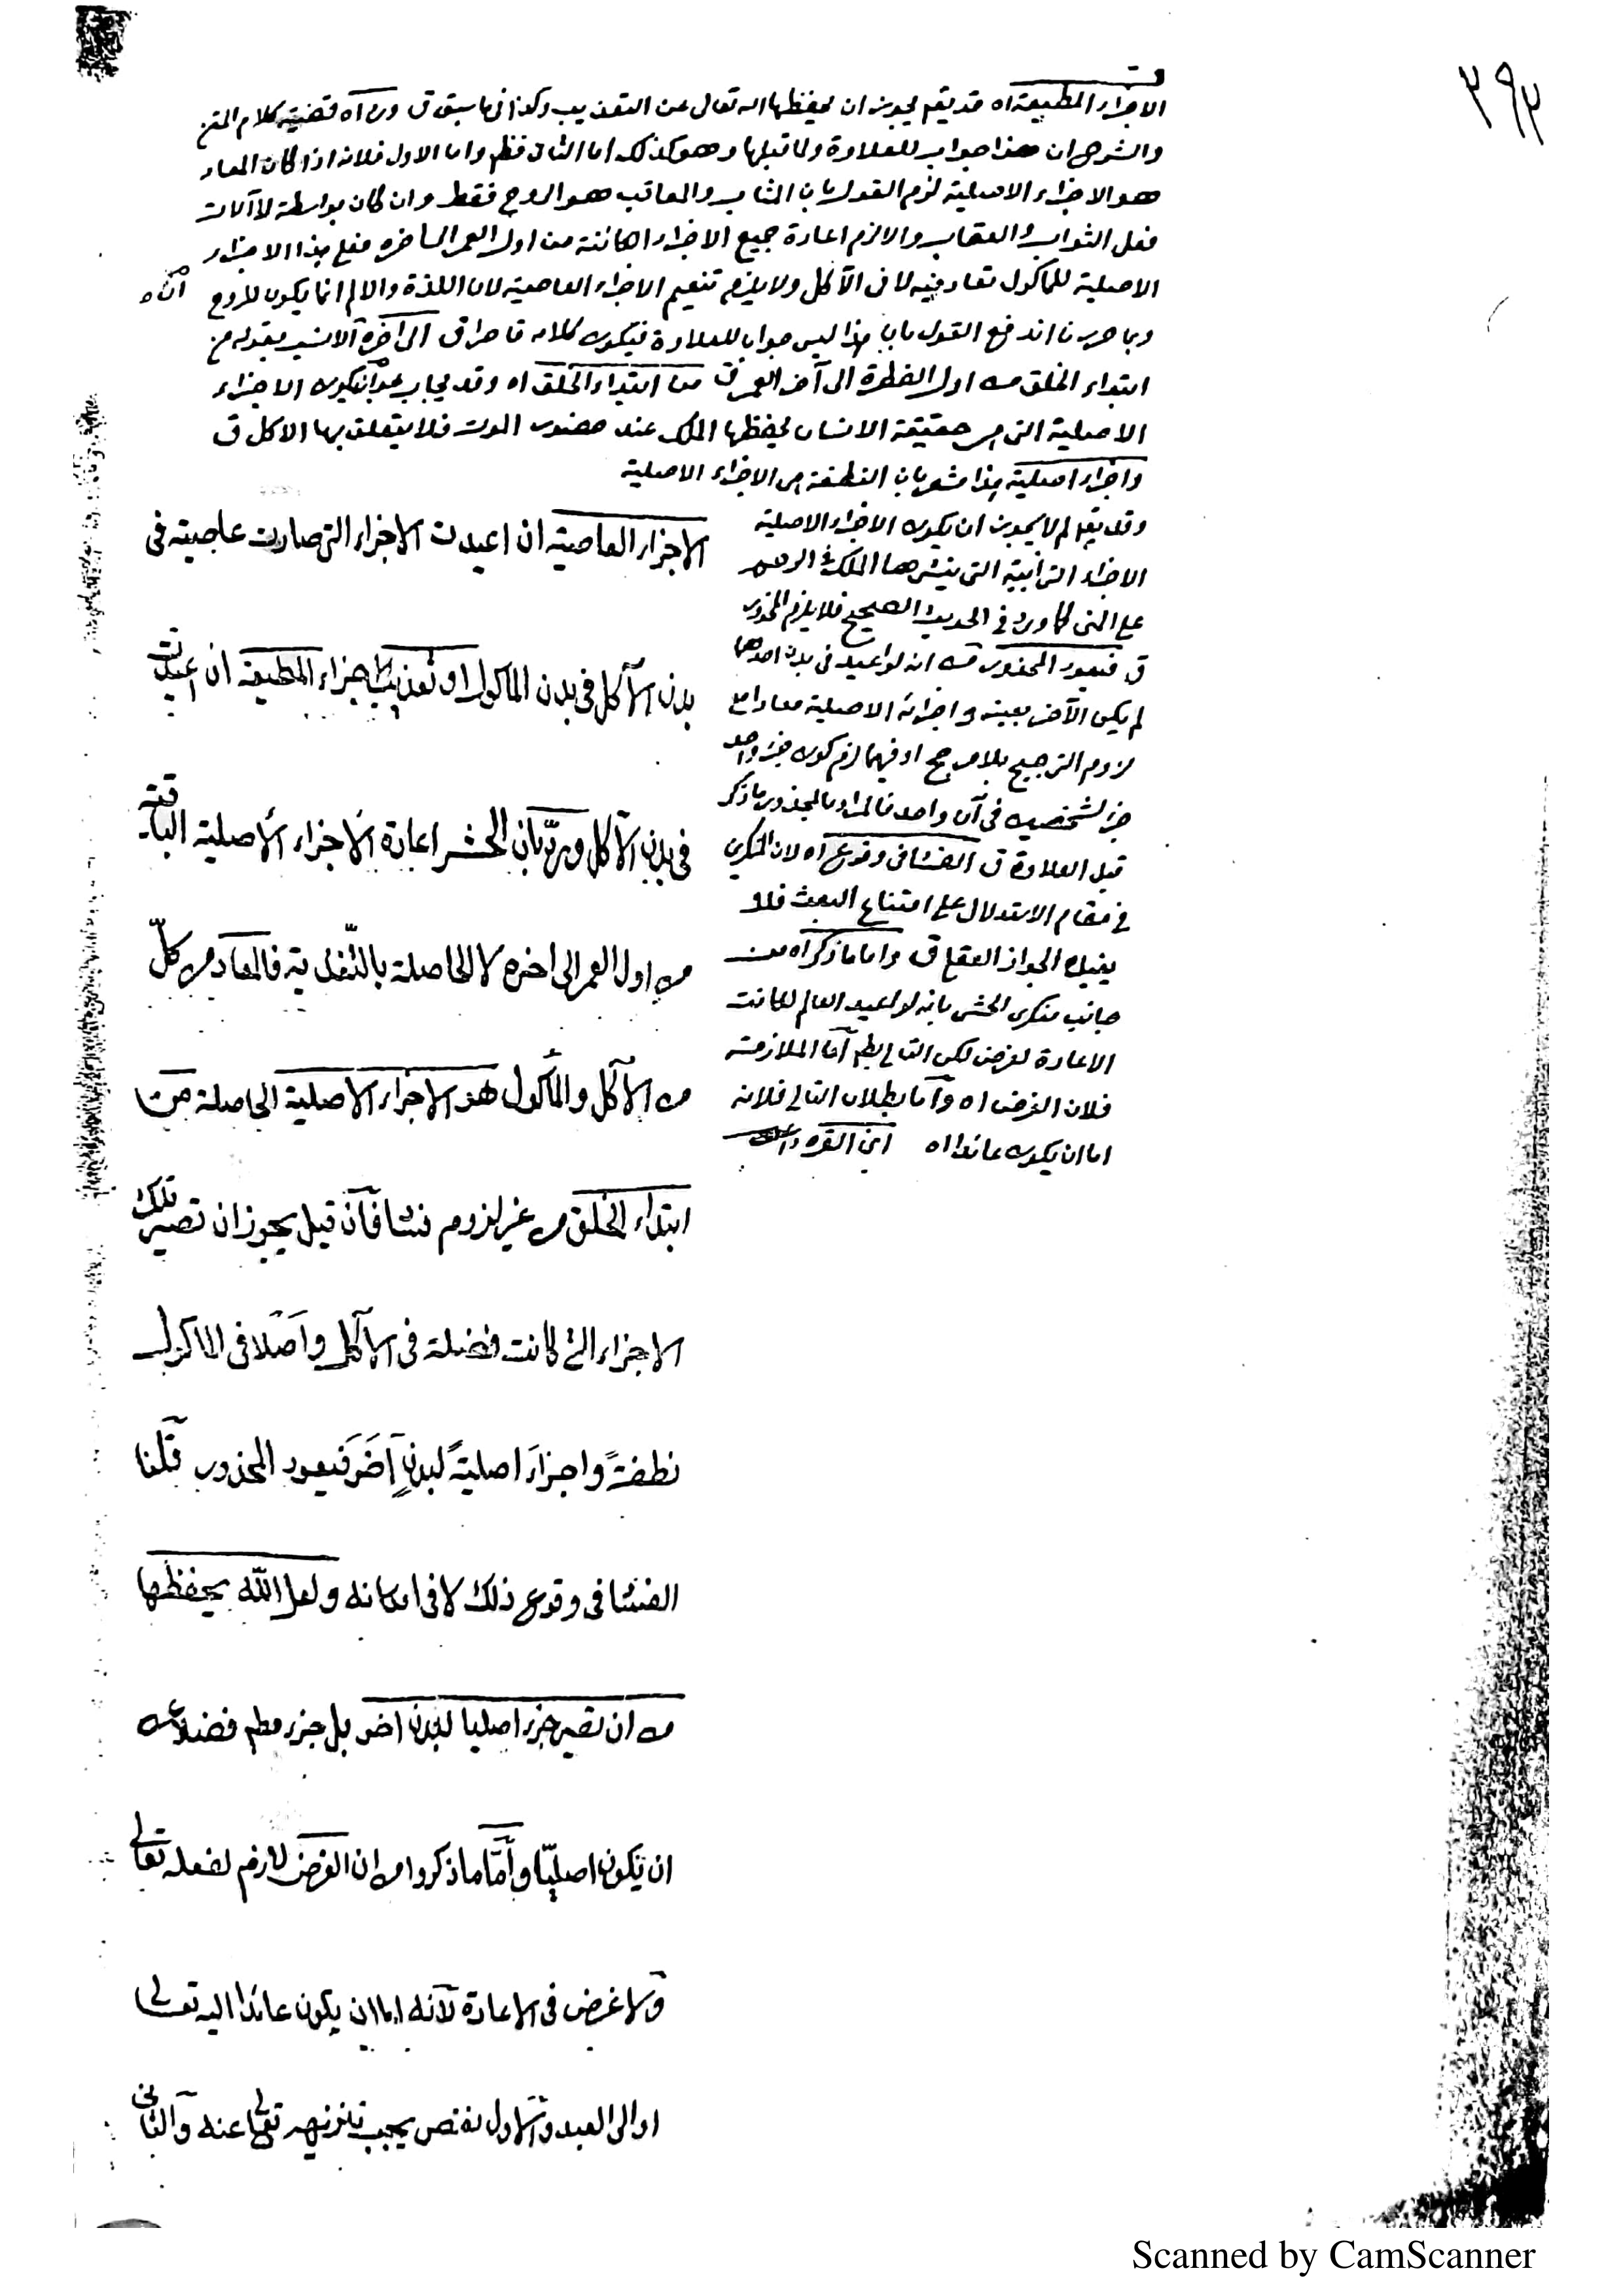 ٣٩٣
الاجزاء المطيعة اه قد يقم يجوز ان يحفظها الله تعالى عن التعذيب وكذا فيما سبق ق ورد اه قضية كلام المتن
والشرح ان هذا جواب للعلاوة ولما قبلها وهو كذلك اما الثاني فظم واما الاول فلانه اذا كان المعاد
هو الاجزاء الاصلية لزم القول بان المثاب والمعاقب هو الروح فقط وان كان بواسطة الآلات
فعل الثواب والعقاب والا لزم اعادة جميع الاجزاء الكائنة من اول العمر الى اخره فعلى هذا الاجزاء
الاصلية للمأكول تعاد فيه لا في الآكل ولا يلزم تنعيم الاجزاء العاصية لان اللذة والالم انما يكون للروح
وبما حررنا اندفع القول بان هذا ليس جوابا للعلاوة فيكون كلامه قاصرا ق الى آخره الانسب بقوله من
ابتداء الخلق من اول الفطرة الى آخر العمر ق من ابتداء الخلق اه وقد يجاب بكون الاجزاء
الاصلية التي هي حقيقة الانسان يحفظها الملك عند حضور الموت فلا يتعلق بها الاكل ق
واجزاء اصلية هذا مشعر بان النطفة من الاجزاء الاصلية
وقد يقم لم لا يجوز ان يكون الاجزاء الاصلية
الاجزاء الترابية التي ينثرها الملك في الرحم
على المنى كما ورد في الحديث الصحيح فلا يلزم المحذور
ق فيعود المحذور من انه لو اعيد في بدن احدهما
لم يكن الآخر بعينه واجزائه الاصلية معادا مع
لزوم الترجيح بلا مرجح او فيهما لزم كون جزء واحد
جزء لشخصين في آن واحد فالمراد بالمحذور ما ذكر
قبل العلاوة ق الفساد في وقوع اه لان المنكرين
في مقام الاستدلال على امتناع البعث فلا
يفيده الجواز العقلي ق واما ما ذكر اه من
جانب منكري الحشر بانه لو اعيد العالم لكانت
الاعادة لغرض لكن التالي بطم اما الملازمة
فلان الغرض اه واما بطلان التالي فلانه
اما ان يكون عائدا اه ابن القره داغى
الاجزاء العاصية ان اعيدت الاجزاء التي صارت عاصية في
بدن الآكل في بدن المأكول او تعذيب الاجزاء المطيعة ان اعيدت
في بدن الآكل وردّ بان الحشر اعادة الاجزاء الأصلية الباقية
من اول العمر الى اخره لا الحاصلة بالتّغذية فالمعاد من كلّ
من الآكل والمأكول هو الاجزاء الاصلية الحاصلة من
ابتداء الخلق من غير لزوم فساد فان قيل يجوز ان تصير تلك
الاجزاء التي كانت فضلة في الآكل واصلا في المأكول
نطفةً واجزاءً اصليةً لبدنٍ آخَرَ فيعود المحذور قلنا
الفساد في وقوع ذلك لا في امكانه ولعل الله يحفظها
من ان تصير جزء اصليا لبدن اخر بل جزء مطم فضلا عن
ان يكون اصليّا وأمّا ما ذكروا من ان الغرض لازم لفعله تعالى
ولا غرض في الاعادة لانه اما ان يكون عائدا اليه تعالى
او الى العبد والاول نقص يجب تنزيهه تعالى عنه والثاني
Scanned by CamScanner